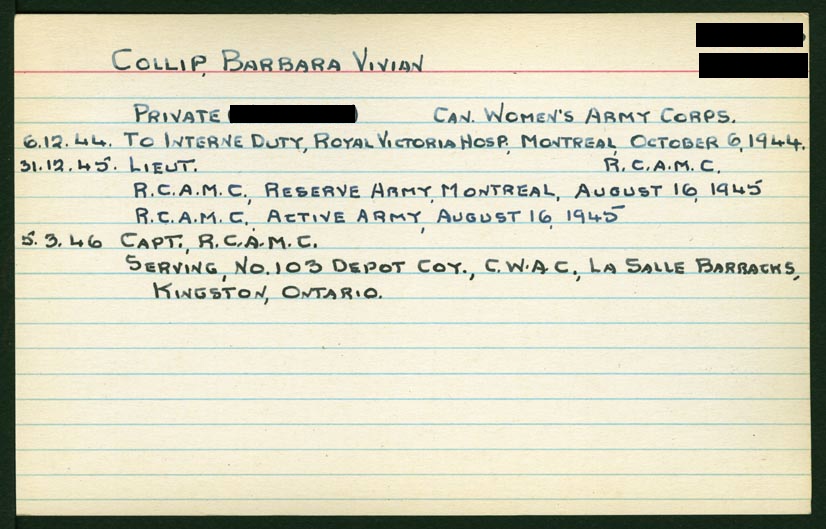 COLLIP, BARBARA VIVIAN
PRIVATE CAN. WOMEN'S ARMY CORPS.
6.12.44. TO INTERNE DUTY, ROYAL VICTORIA HOSP, MONTREAL, OCTOBER 6, 1944.
31.12.45. LIEUT. R.C.A.M.C.
R.C.A.M.C., RESERVE ARMY, MONTREAL, AUGUST 16, 1945
R.C.A.M.C., ACTIVE ARMY, AUGUST 16, 1945
5.3.46 CAPT., R.C.A.M.C.
SERVING, NO. 103 DEPOT COY., C.W.A.C., LA SALLE BARRACKS,
KINGSTON, ONTARIO.